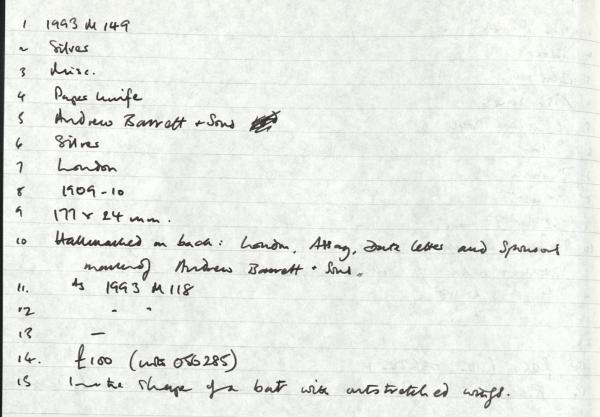 1 1993 M 149
2 Silver
3 Misc.
4 Paper knife
5 Andrew Barrett + Sons
6 Silver
7 London
8 1909-10
9 177 x 24 mm.
10 Hallmarked on back: London, Assay, Date letter and Sponsors
mark of Andrew Barrett + Sons.
11. As 1993 M 118
12 " "
13 —
14. £100 (with 050285)
15 In the shape of a bat with outstretched wings.